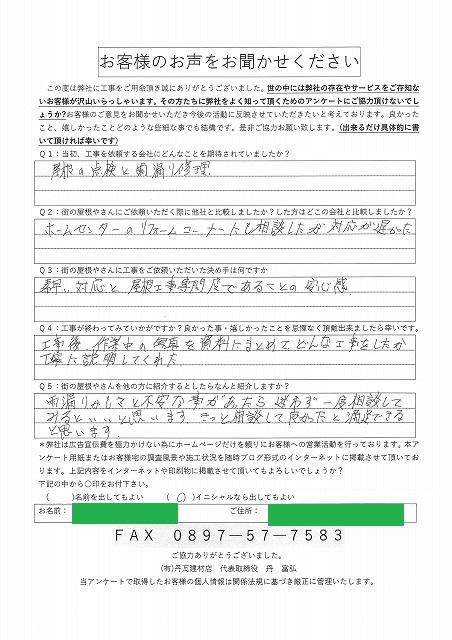 お客様のお声をお聞かせください
この度は弊社に工事をご用命頂き誠にありがとうございました。世の中には弊社の存在やサービスをご存知な
いお客様が沢山いらっしゃいます。その方たちに弊社をよく知って頂くためのアンケートにご協力頂けないでし
ょうか?お客様のご意見をお聞かせいただき今後の活動に反映させていただきたいと考えております。良かった
こと、嬉しかったことどのような些細な事でも結構です。是非ご協力お願い致します。(出来るだけ具体的に書
いて頂ければ幸いです)
Q1:当初、工事を依頼する会社にどんなことを期待されていましたか?
屋根の点検と雨漏り修理
Q2:街の屋根やさんにご依頼いただく際に他社と比較しましたか?した方はどこの会社と比較しましたか?
ホームセンターのリフォームコーナーでも相談したが対応が遅かった
Q3:街の屋根やさんに工事をご依頼いただいた決め手は何ですか
素早い対応と屋根工事専門店であることの安心感
Q4:工事が終わってみていかがですか?良かった事・嬉しかったことを忌憚なく頂戴出来ましたら幸いです。
工事後、作業中の写真を資料にまとめてどんな工事をしたか
丁寧に説明してくれた
Q5:街の屋根やさんを他の方に紹介するとしたらなんと紹介しますか?
雨漏りかしら?と不安な事があたら迷わず一度相談して
みるといいと思います。きっと相談して良かったと満足できる
と思います。
*弊社は広告宣伝費を極力かけない為にホームページだけを頼りにお客様への営業活動を行っております。本ア
ンケート用紙またはお客様宅の調査風景や施工状況を随時ブログ形式のインターネットに掲載させて頂いてお
ります。上記内容をインターネットや印刷物に掲載させて頂いてもよろしいでしょうか?
下記の中から〇印をお付下さい。
( )名前を出してもよい ( ○ )イニシャルなら出してもよい
お名前: ご住所:
FAX 0897-57-7583
ご協力ありがとうございました。
(有)丹瓦建材店 代表取締役 丹 富弘
当アンケートで取得したお客様の個人情報は関係法規に基づき厳正に管理いたします。